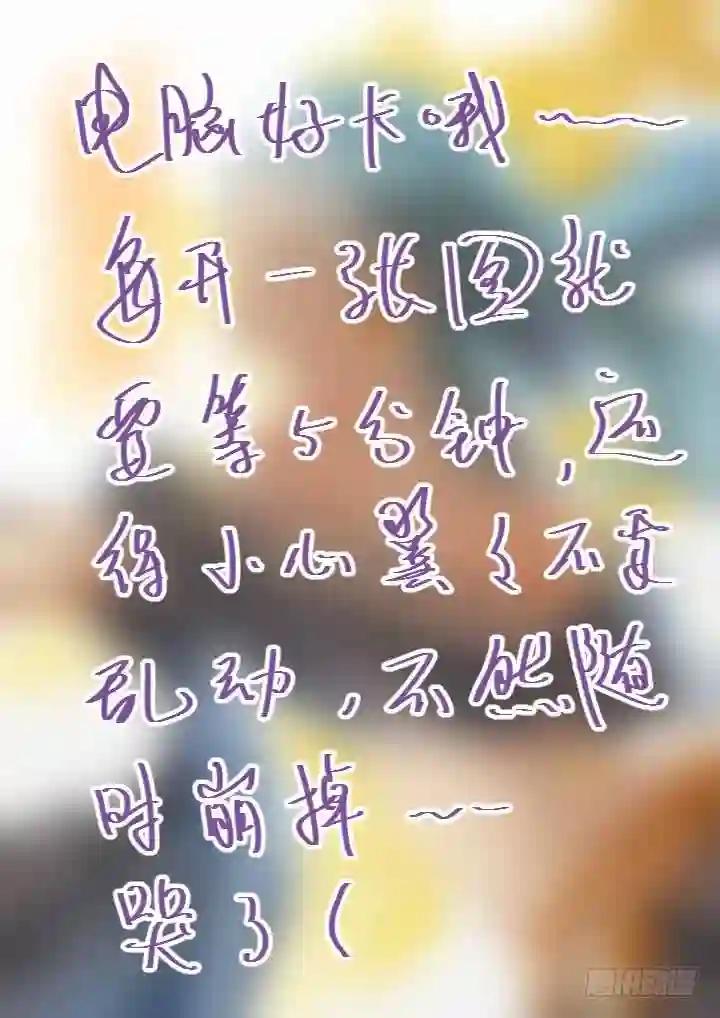 电脑好卡哦~~
每开一张图就
要等5分钟,还
得小心翼々不要
乱动,不然随
时崩掉~~
哭了(